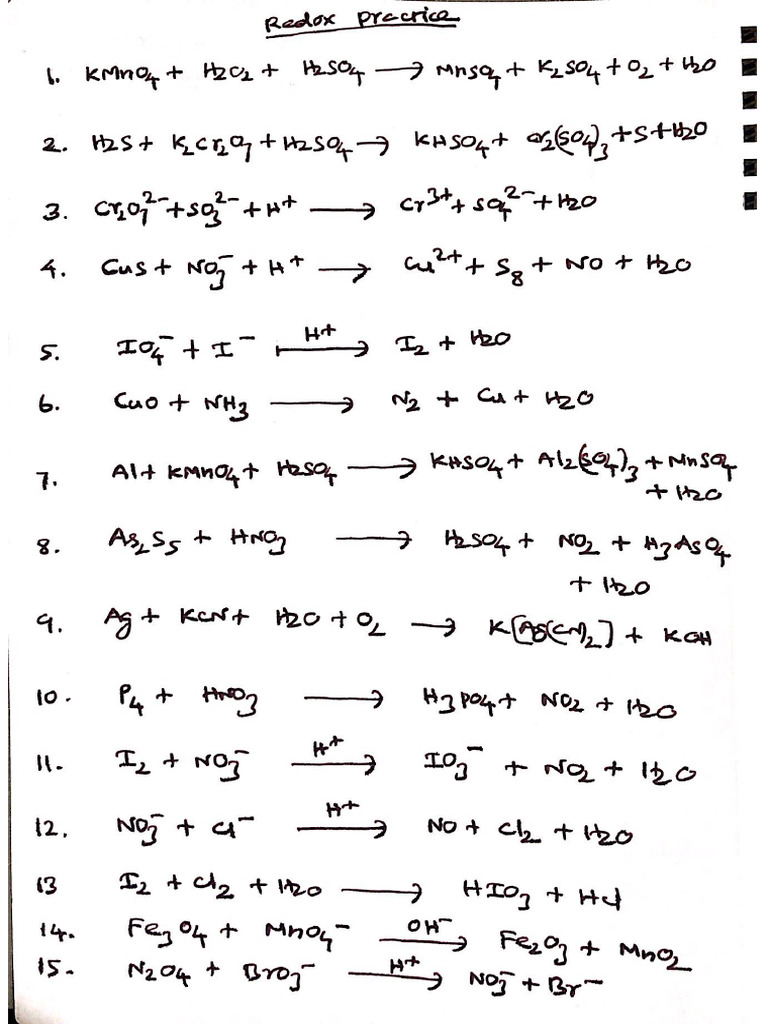 Redox practice
1. KMnO4 + H2O2 + H2SO4 → MnSO4 + K2SO4 + O2 + H2O
2. H2S + K2Cr2O7 + H2SO4 → KHSO4 + Cr2(SO4)3 + S + H2O
3. Cr2O7²⁻ + SO3²⁻ + H⁺ → Cr³⁺ + SO4²⁻ + H2O
4. CuS + NO3⁻ + H⁺ → Cu²⁺ + S8 + NO + H2O
5. IO4⁻ + I⁻ H⁺→ I2 + H2O
6. CuO + NH3 → N2 + Cu + H2O
7. Al + KMnO4 + H2SO4 → KHSO4 + Al2(SO4)3 + MnSO4
+ H2O
8. As2S5 + HNO3 → H2SO4 + NO2 + H3AsO4
+ H2O
9. Ag + KCN + H2O + O2 → K[Ag(CN)2] + KOH
10. P4 + HNO3 → H3PO4 + NO2 + H2O
11. I2 + NO3⁻ H⁺→ IO3⁻ + NO2 + H2O
12. NO3⁻ + Cl⁻ H⁺→ NO + Cl2 + H2O
13 I2 + Cl2 + H2O → HIO3 + HCl
14. Fe3O4 + MnO4⁻ OH⁻→ Fe2O3 + MnO2
15. N2O4 + BrO3⁻ H⁺→ NO3⁻ + Br⁻